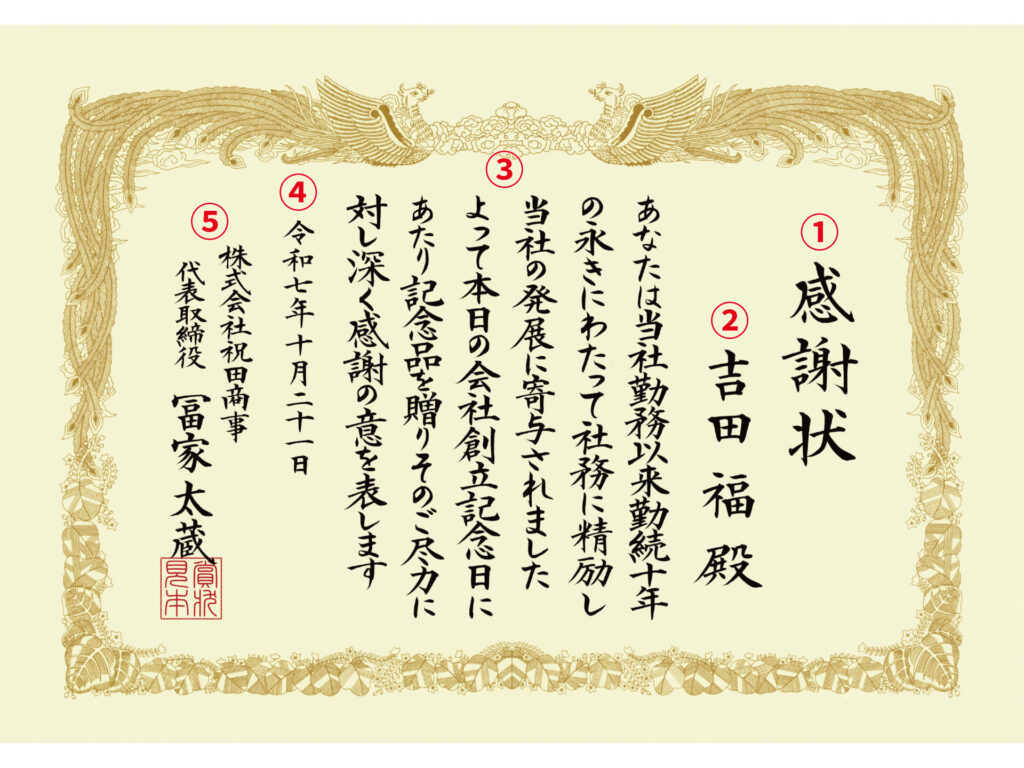 ①
感謝状
②
吉田福殿
③
あなたは当社勤務以来勤続十年
の永きにわたって社務に精励し
当社の発展に寄与されました
よって本日の会社創立記念日に
あたり記念品を贈りそのご尽力に
対し深く感謝の意を表します
④
令和七年十月二十一日
⑤
株式会社祝田商事
代表取締役 冨家太蔵
賞状
見本